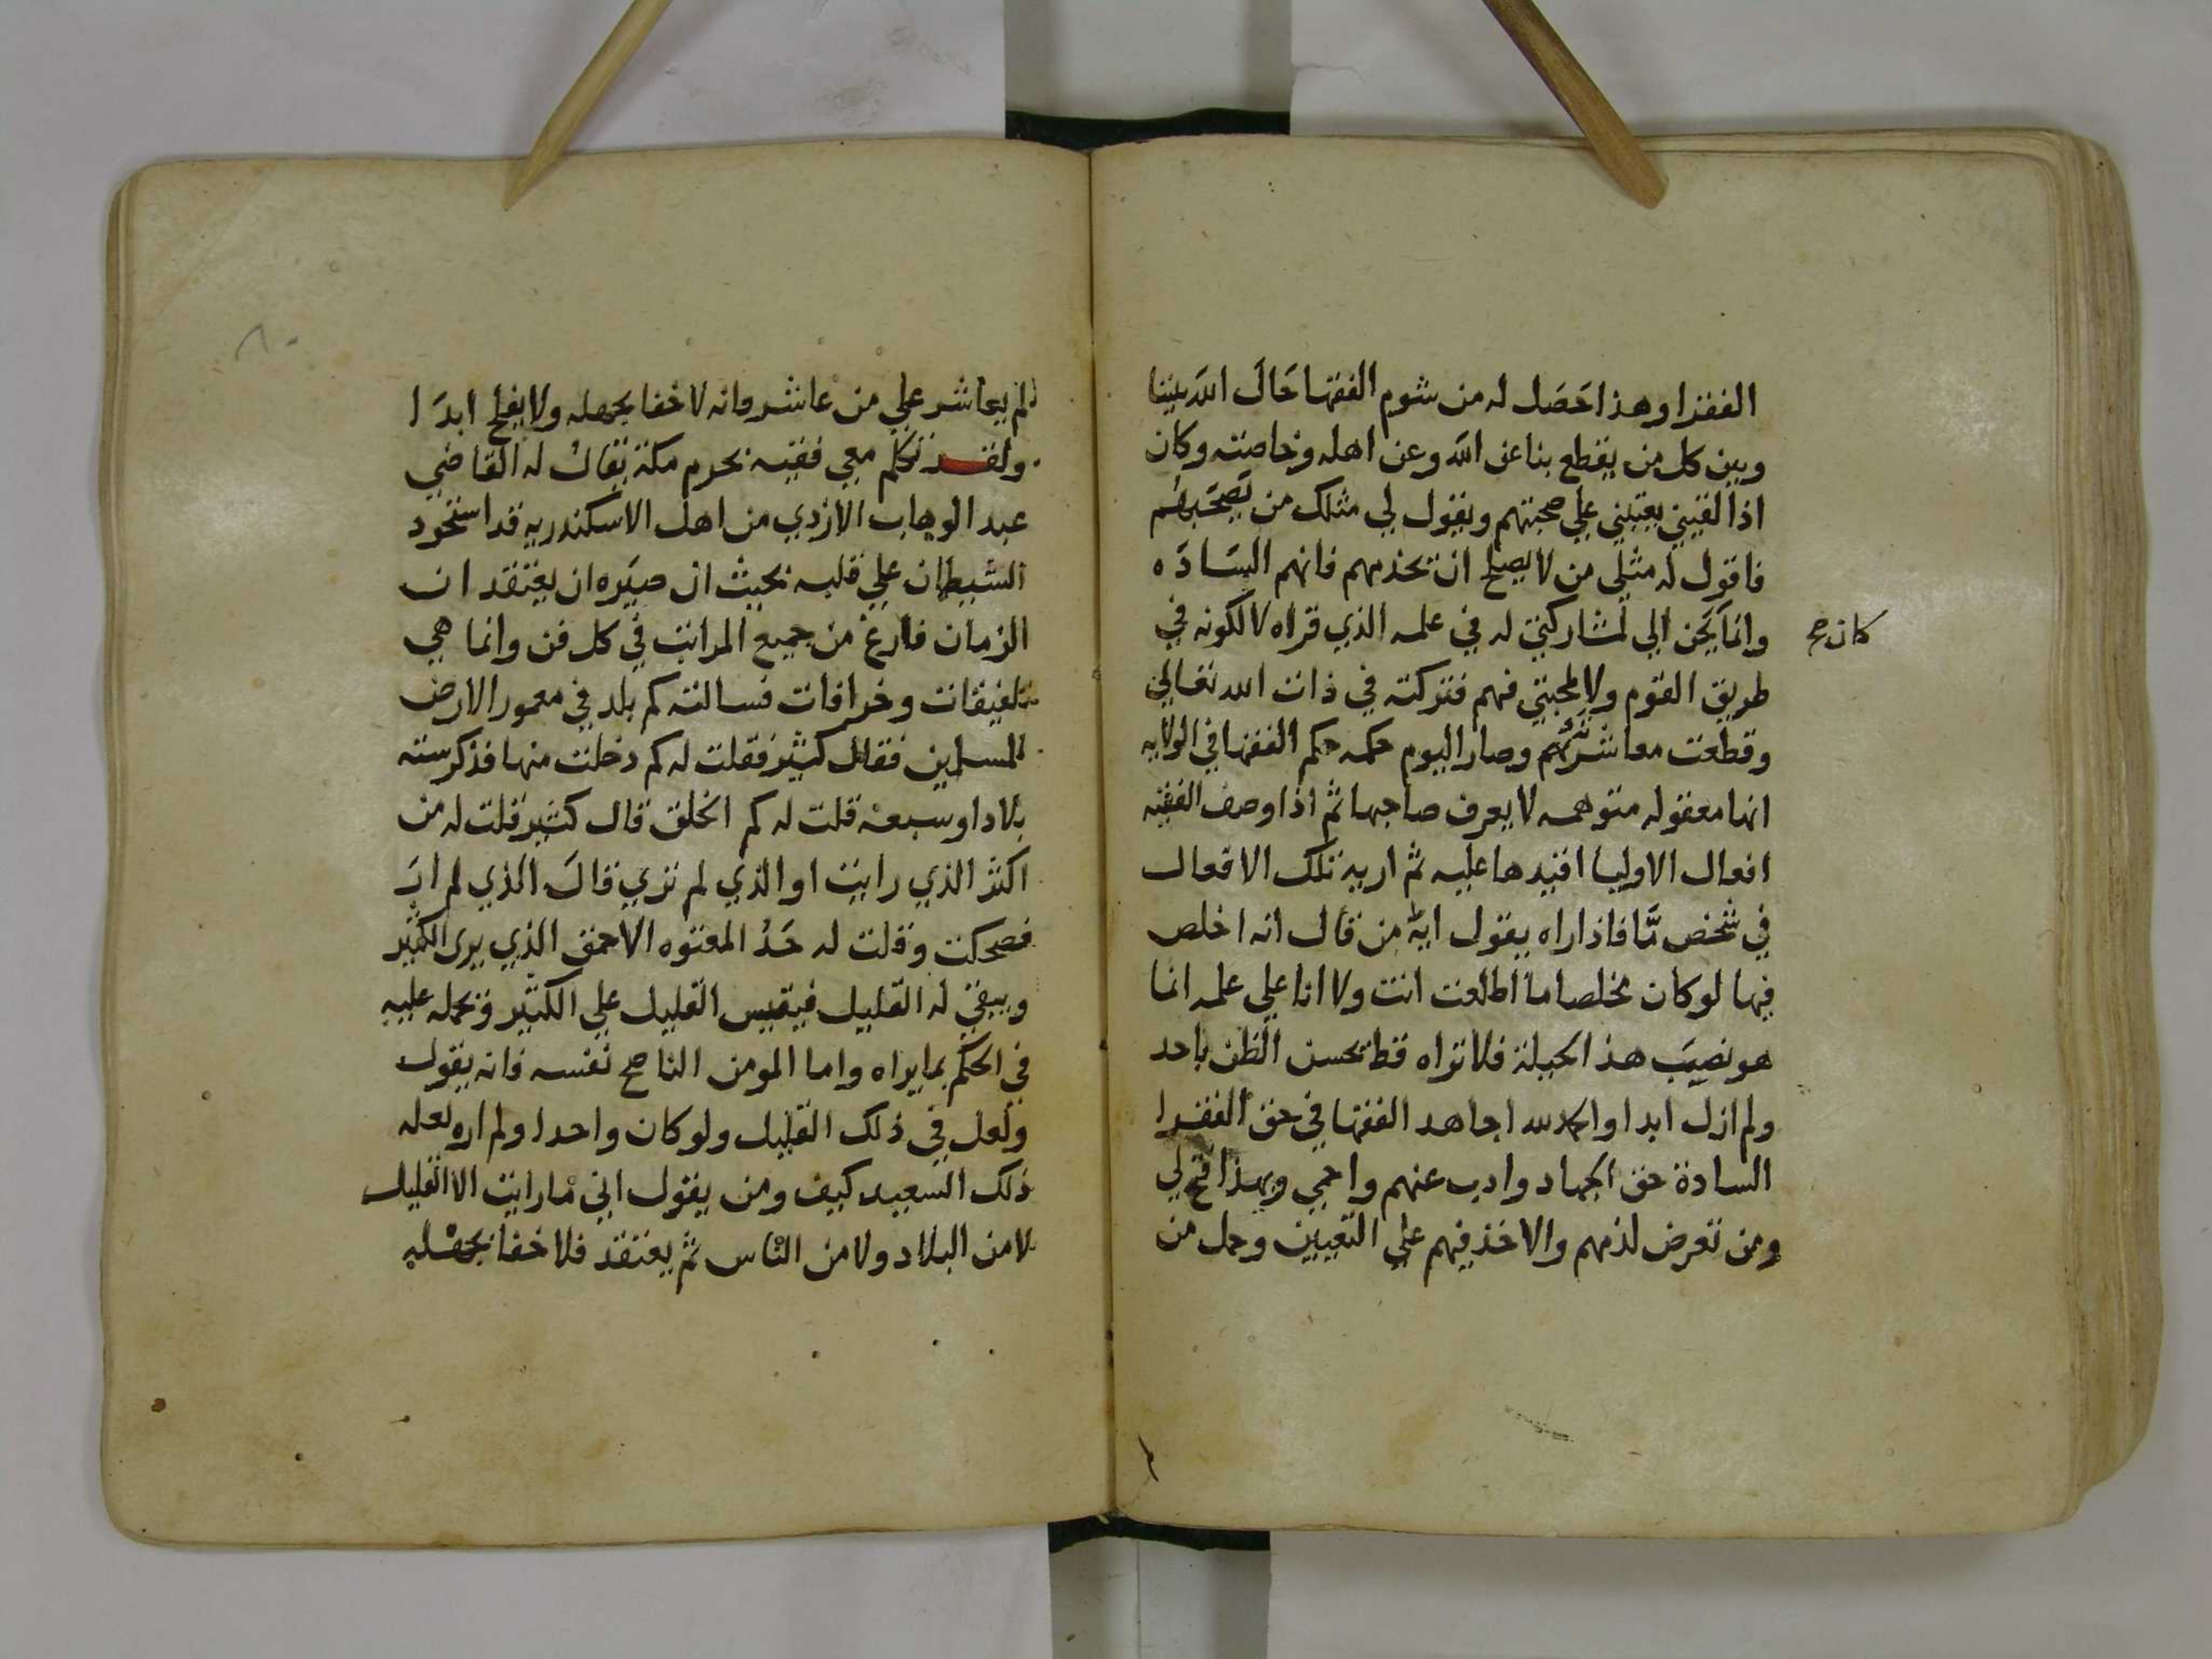 الفقرا وهذا حَصَل له من شوم الفقها حَالَ الله بيننا
وبين كل من يقطع بنا عن الله وعن اهله وخاصته وكان
اذا لقيني يعتبني علي صحبتهم ويقول لي مثلك من يَصحَبهُم
فاقول له مثلي من لا يصلح ان يخدمهم فانهم السَادَه
وانما يَحن الي لمشاركتي له في علمه الذي قراه لا لكونه في
كان صح
طريق القوم ولا لمحبتي فهم فتركته في ذات الله تعالي
وقطعت معاشرتهم وصار اليوم حكمه حكم الفقها في الولايه
انها معقوله متوهمه لا يعرف صاحبها ثم اذا وصف الفقيه
افعال الاوليا اقيدها عليه ثم اريه تلك الافعال
في شخص مّا فاذا راه يقول ايه من قال انه اخلص
فيها لو كان مخلصا ما اطلعت انت ولا انا علي علمه انما
هو نصيَب هذا الحيلة فلا تراه قط يحسن الظن باحد
ولم ازل ابدا والحمد لله اجاهد الفقها في حق الفقرا
السادة حق الجهاد واذب عنهم واحمي وبهذا فتح لي
ومن تعرض لذمهم والاخذ فيهم علي التعيين وحمل من
لم يعاشر علي من عاشر فانه لا خفا بجهله ولا يفلح ابدَا
ولقد تكلم معي فقيه بحرم مكة يقال له القاضي
عبد الوهاب الازدي من اهل الاسكندريه قد استحود
الشيطان علي قلبه بحيث ان صيَره ان يعتقد ان
الزمان فارغ من جميع المراتب في كل فن وانما هي
تلفيقات وخرافات فسالته كم بلد في معمور الارض
للمسلمين فقال كثير فقلت له كم دخلت منها فذكر سته
بلادا وسبعة قلت له كم الخلق قال كثير قلت له من
اكثر الذي رايت او الذي لم تري قالَ الذي لم ارَ
فضحكت وقلت له حَدُ المعتوه الاحمق الذي يرى الكثير
ويبقي له القليل فيقيس القليل علي الكثير وتحمله عليه
في الحكم بما يراه واما المومن الناصح نفسه فانه يقول
ولعل في ذلك القليل ولو كان واحدا ولم اره لعله
ذلك السعيد كيف ومن يقول اني ما رايت الا القليل
لا من البلاد ولا من الناس ثم يعتقد فلا خفا بجهله